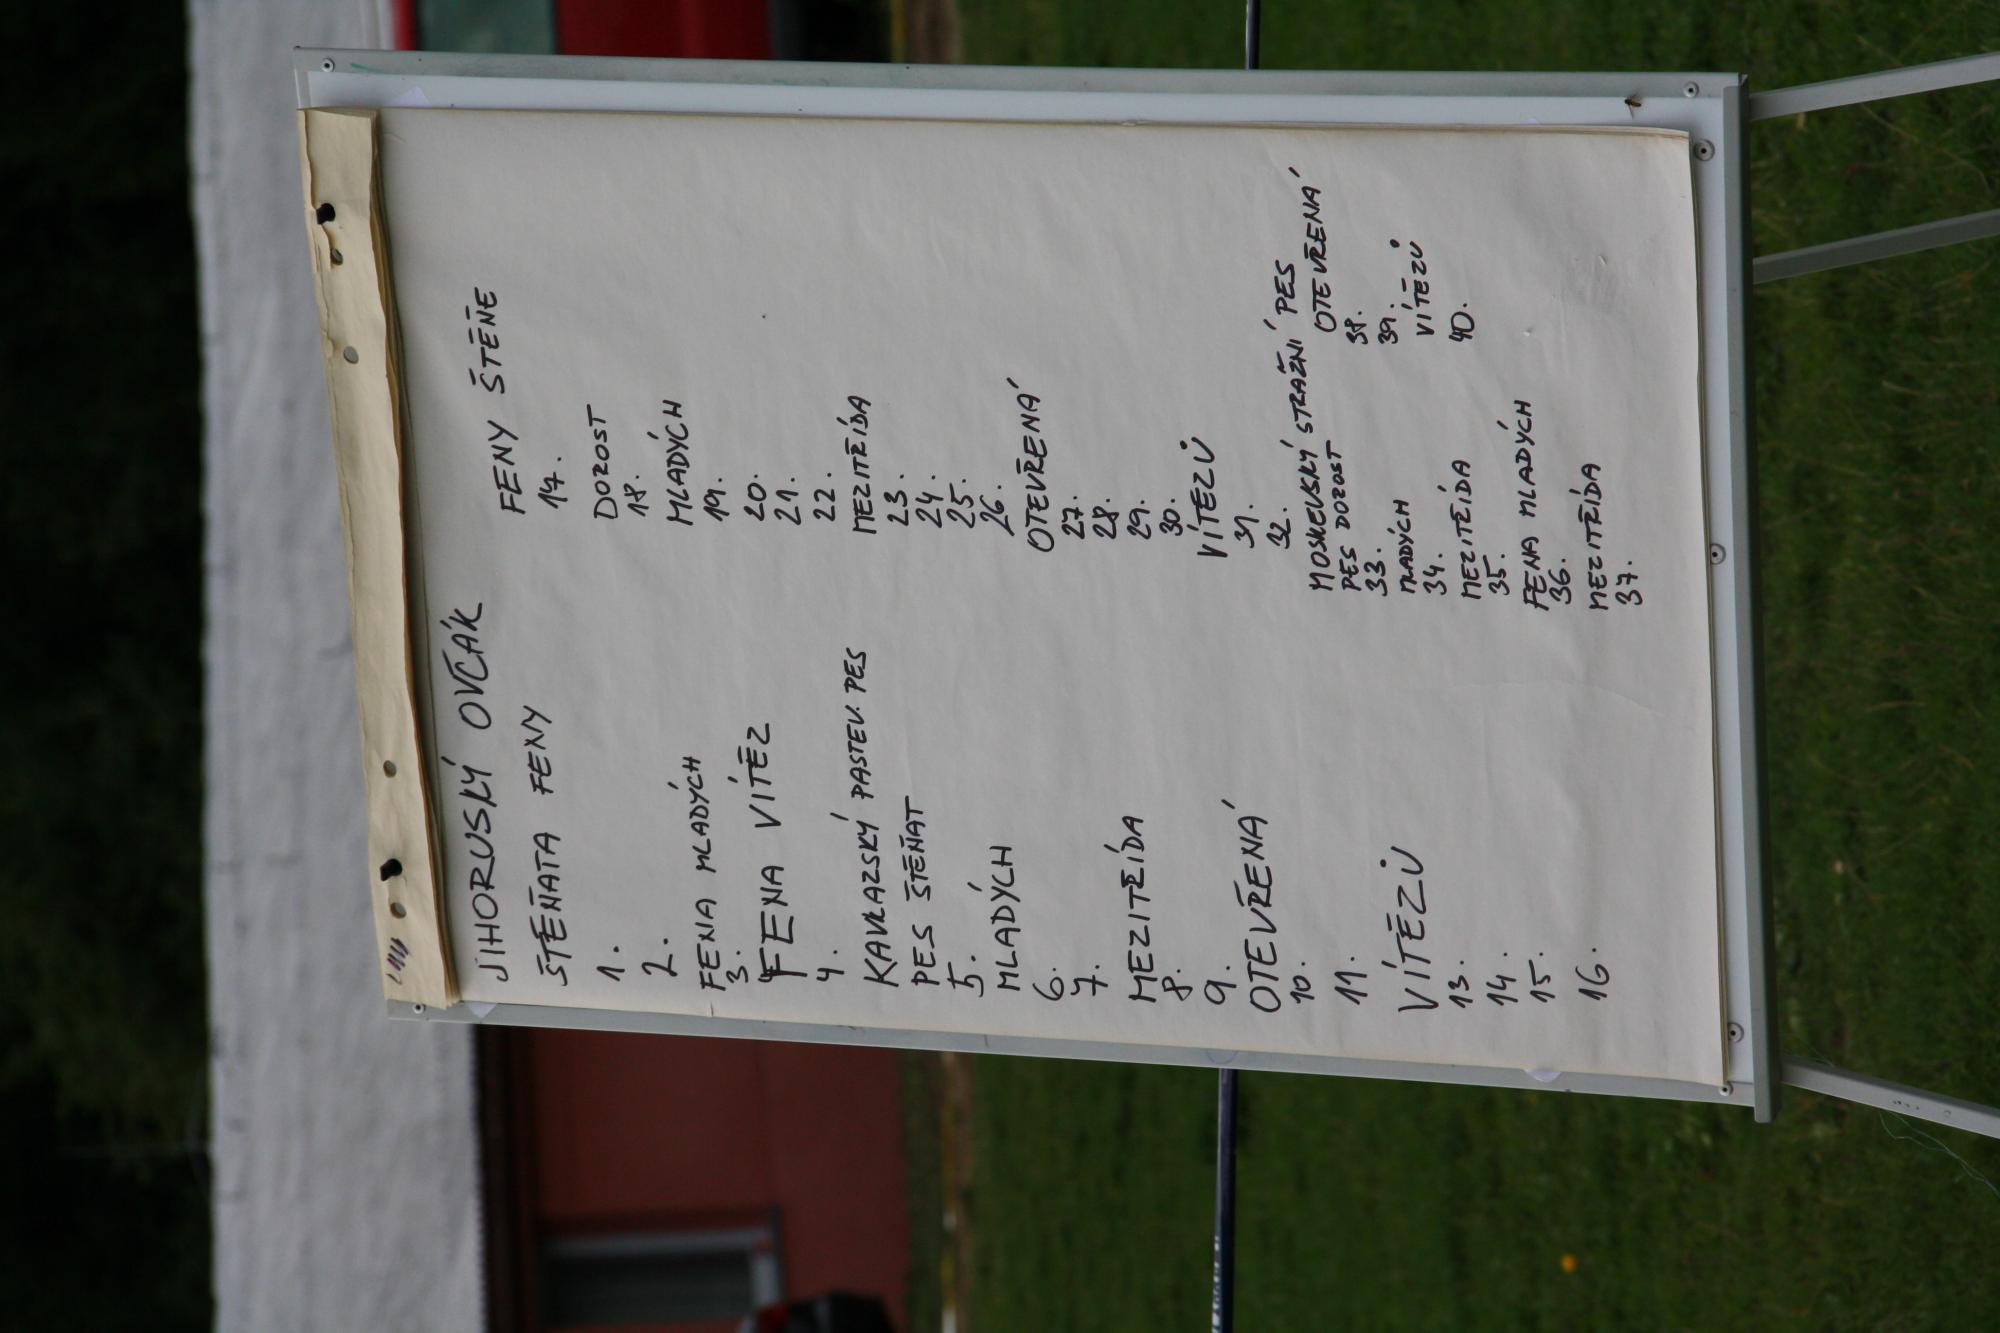 JIHORUSKÝ OVČÁK
ŠTĚŇATA FENY
1.
2.
FENA MLADÝCH
3.
FENA VÍTĚZ
4.
KAVKAZSKÝ PASTEV. PES
PES ŠTĚŇAT
5.
MLADÝCH
6.
7.
MEZITŘÍDA
8.
9.
OTEVŘENÁ
10.
11.
VÍTĚZŮ
13.
14.
15.
16.
FENY ŠTĚNĚ
17.
DOROST
18.
MLADÝCH
19.
20.
21.
22.
MEZITŘÍDA
23.
24.
25.
26.
OTEVŘENÁ
27.
28.
29.
30.
VÍTĚZŮ
31.
32.
MOSKEVSKÝ STRAŽNÍ PES
PES DOROST
33.
MLADÝCH
34.
MEZITŘÍDA
35.
FENA MLADÝCH
36.
MEZITŘÍDA
37.
OTEVŘENÁ
38.
39.
VÍTĚZŮ
40.